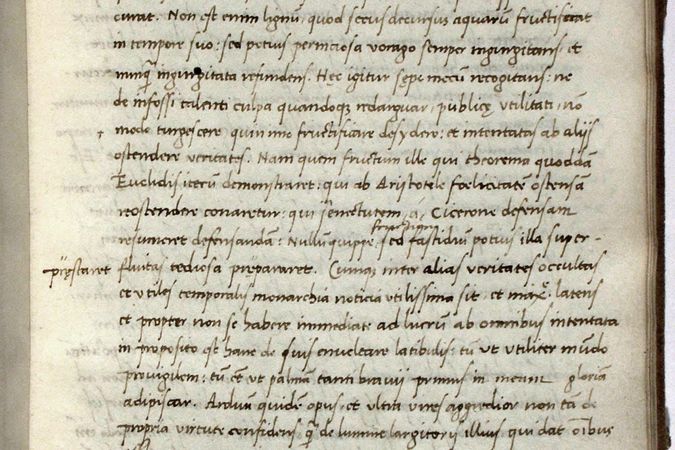 curat. Non est enim lignū, quod secus decursus aquarū fructificat
in tempore suo: sed potius perniciosa vorago semper ingurgitans, et
nunq̄ ingurgitata refundens. Hęc igitur sępe mecū recogitans: ne
de infossi talenti culpa quandoq; redarguar, publicę utilitati, nō
modo turgescere, quin imo fructificare desydero: et intentatas ab aliis
ostendere veritates. Nam quem fructum ille qui theorema quoddā
Euclidis iterū demonstraret: qui ab Aristotele fœlicitatē ostensā
reostendere conaretur: qui senectutem, á, Cicerone defensam
resumeret defensandam: Nullū quippe, sed fastidiū potius illa super-
pręstaret
fluitas tediosa prępararet. Cumq; inter alias veritates occultas
et utiles temporalis monarchia noticia utilissima sit, et max. latens
et propter non se habere immediate ad lucrū ab omnibus intentata
in proposito est hanc de suis enucleare latibulis: tū ut utiliter mūdo
provigilem: tū et ut palmā tanti bravii primus in meam gloriā
adipiscar. Arduū quidē opus, et ultra vires aggredior non tā de
propria virtute confidens q̄ de lumine largitoris illius, qui dat oībus